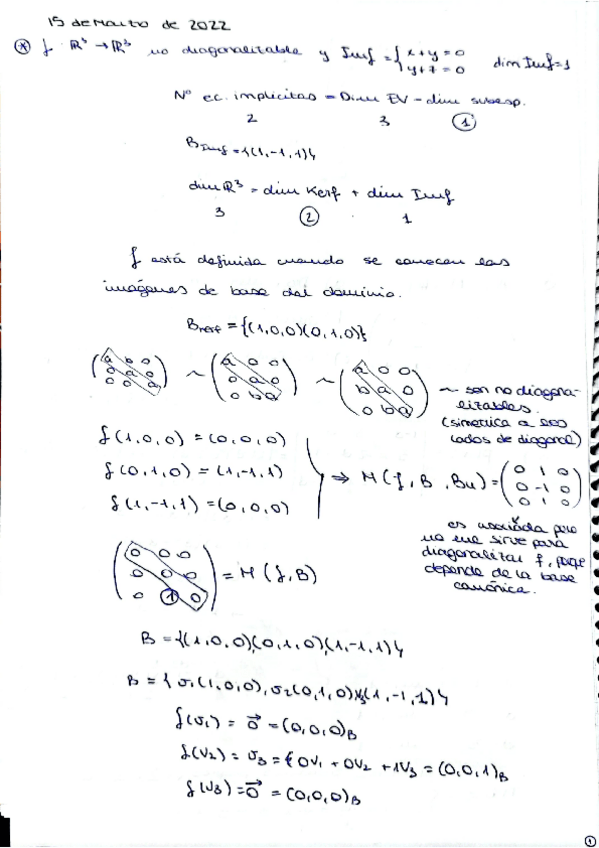 15 de Marzo de 2022
* f: ℝ³ → ℝ³ no diagonalizable y Imf = { x+y=0 dim Imf=1
y+z=0
Nº ec. implícitas = Dim EV - dim subesp.
2 3 1
B Imf = {(1,-1,1)}
dim ℝ³ = dim Kerf + dim Imf
3 2 1
f está definida cuando se conocen las
imágenes de base del dominio.
B Kerf = {(1,0,0)(0,1,0)}
(a 0 0 ~ (a 0 0 ~ (a 0 0 ~ son no diagona-
0 a 0 0 a 0 b a 0 lizables.
0 0 a) 0 b a) 0 b a) (simetrica a los
lados de diagonal)
f(1,0,0) = (0,0,0)
f(0,1,0) = (1,-1,1) ⇒ M(f, B, Bu) = (0 1 0
f(1,-1,1) = (0,0,0) 0 -1 0
0 1 0)
es asociada pero
no me sirve para
diagonalizar f, porque
depende de la base
canónica.
(0 0 0
0 0 0 = M(f,B)
0 1 0)
B = {(1,0,0)(0,1,0)(1,-1,1)}
B = {v1(1,0,0), v2(0,1,0)v3(1,-1,1)}
f(v1) = 0⃗ = (0,0,0)B
f(v2) = v3 = 0v1 + 0v2 + 1v3 = (0,0,1)B
f(v3) = 0⃗ = (0,0,0)B
1